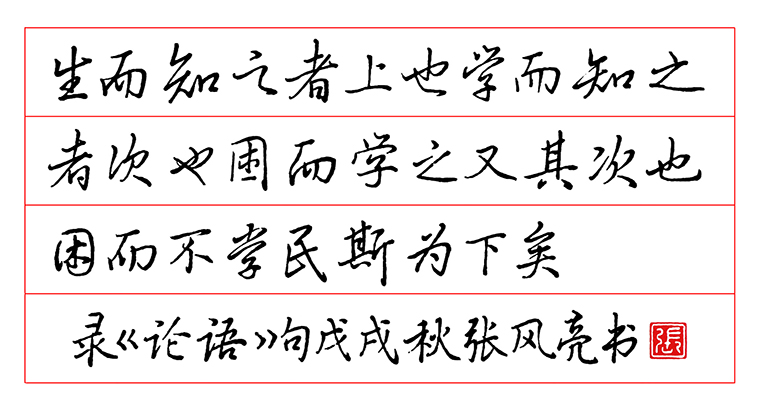 生而知之者上也学而知之
者次也困而学之又其次也
困而不学民斯为下矣
录《论语》句戊戌秋张风亮书
張